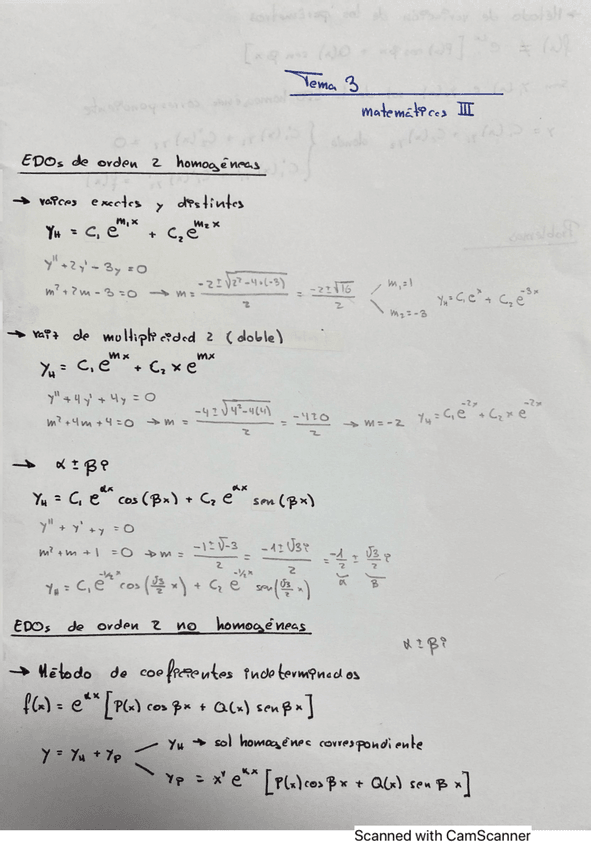 Tema 3
matemáticas III
EDOs de orden 2 homogéneas
→ raíces exactas y distintas
y_H = C₁ e^{m₁x} + C₂ e^{m₂x}
y'' + 2y' - 3y = 0
m² + 2m - 3 = 0 → m = \frac{-2 ± \sqrt{2² - 4·(-3)}}{2} = \frac{-2 ± \sqrt{16}}{2} < m₁ = 1 m₂ = -3 y_H = C₁ e^x + C₂ e^{-3x}
→ raíz de multiplicidad 2 (doble)
y_H = C₁ e^{mx} + C₂ x e^{mx}
y'' + 4y' + 4y = 0
m² + 4m + 4 = 0 → m = \frac{-4 ± \sqrt{4² - 4(4)}}{2} = \frac{-4 ± 0}{2} → m = -2 y_H = C₁ e^{-2x} + C₂ x e^{-2x}
→ α ± βi
y_H = C₁ e^{αx} cos(βx) + C₂ e^{αx} sen(βx)
y'' + y' + y = 0
m² + m + 1 = 0 → m = \frac{-1 ± \sqrt{-3}}{2} = \frac{-1 ± \sqrt{3}i}{2} = \frac{-1}{2} ± \frac{\sqrt{3}}{2}i
α β
y_H = C₁ e^{-1/2x} cos(\frac{\sqrt{3}}{2} x) + C₂ e^{-1/2x} sen(\frac{\sqrt{3}}{2} x)
EDOs de orden 2 no homogéneas
α ± βi
→ Método de coeficientes indeterminados
f(x) = e^{αx} [P(x) cos βx + Q(x) sen βx]
y = y_H + y_P
y_H → sol homogénea correspondiente
y_P = x^r e^{αx} [P(x) cos βx + Q(x) sen βx]
Scanned with CamScanner